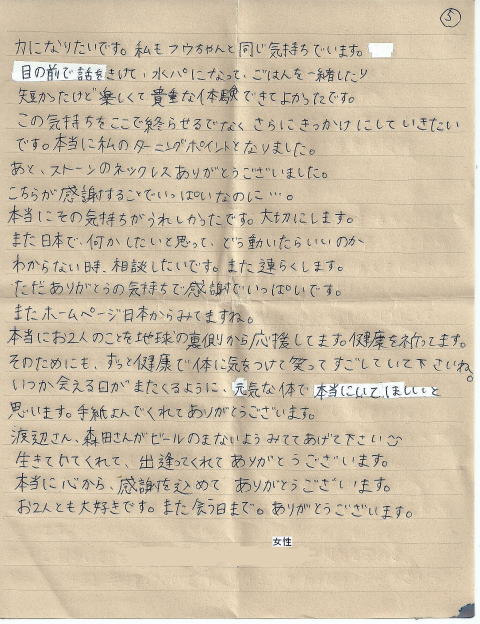 ⑤
力になりたいです。私もフウちゃんと同じ気持ちでいます。
目の前で話をきけて、水パになって、ごはんを一緒したり
短かったけど楽しくて貴重な体験できてよかったです。
この気持ちをここで終らせるでなくさらにきっかけにしていきたい
です。本当に私のターニングポイントとなりました。
あと、ストーンのネックレスありがとうございました。
こちらが感謝することでいっぱいなのに…。
本当にその気持ちがうれしかったです。大切にします。
また日本で、何かしたいと思って、どう動いたらいいのか
わからない時、相談したいです。また連らくします。
ただありがとうの気持ちで感謝でいっぱいです。
またホームページ日本からみてますね。
本当にお2人のことを地球の裏側から応援してます。健康を祈ってます。
そのためにも、ずっと健康で体に気をつけて笑ってすごしていて下さいね。
いつか会える日がまたくるように、元気な体で本当にいてほしいと
思います。手紙よんでくれてありがとうございます。
渡辺さん、森田さんがビールのまないようみててあげて下さい
生きていてくれて、出逢ってくれてありがとうございます。
本当に心から、感謝を込めてありがとうございます。
お2人とも大好きです。また会う日まで。ありがとうございます。
女性